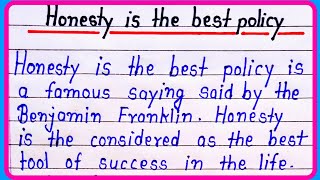 Honesty is the best policy
Honesty is the best policy is
a famous saying said by the
Benjamin Franklin. Honesty
is the considered as the best
tool of success in the life.